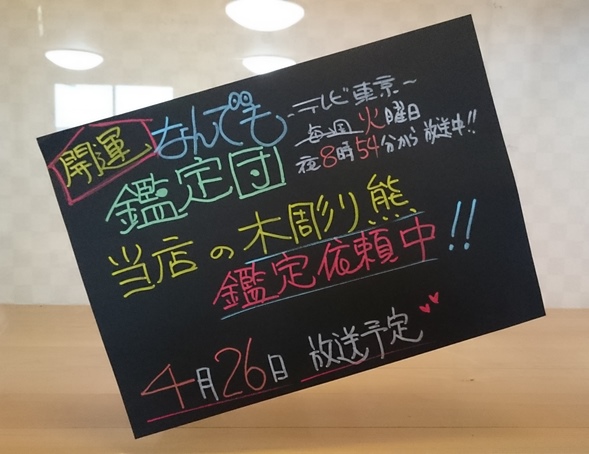 開運なんでも
鑑定団
-テレビ東京~
毎週火曜日
夜8時54分から放送中!!
当店の木彫り熊
鑑定依頼中!!
4月26日 放送予定